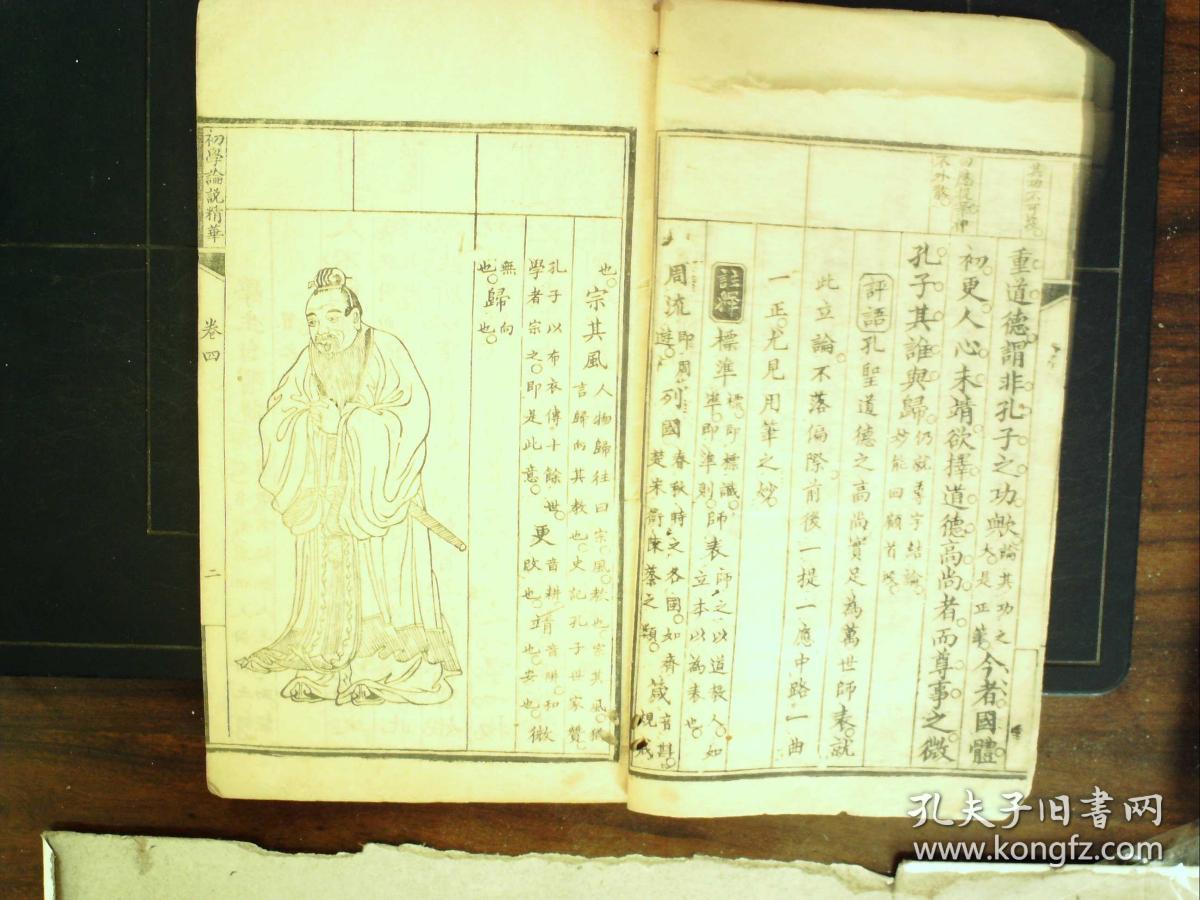 重道德謂非孔子之功歟論其功之大是正筆今者國體
初更人心未靖欲擇道德高尚者而尊事之微
孔子其誰與歸仍就尊字結論妙能回顧首段
評語 孔聖道德之高尚實足為萬世師表就
此立論不落偏際前後一提一應中路一曲
一正尤見用筆之妙
註釋 標準標即標識準即準則師表師之以道教人如立木以為表也
周流即周遊列國春秋時之各國如齊楚宋衛陳蔡之類
也宗其風人物歸往曰宗風教也宗其風言歸向其教也史記孔子世家贊
孔子以布衣傳十餘世學者宗之即是此意更音耕改也靖也安也微
無也歸向也
初學論說精華
卷四
二
孔夫子旧書网
www.kongfz.com